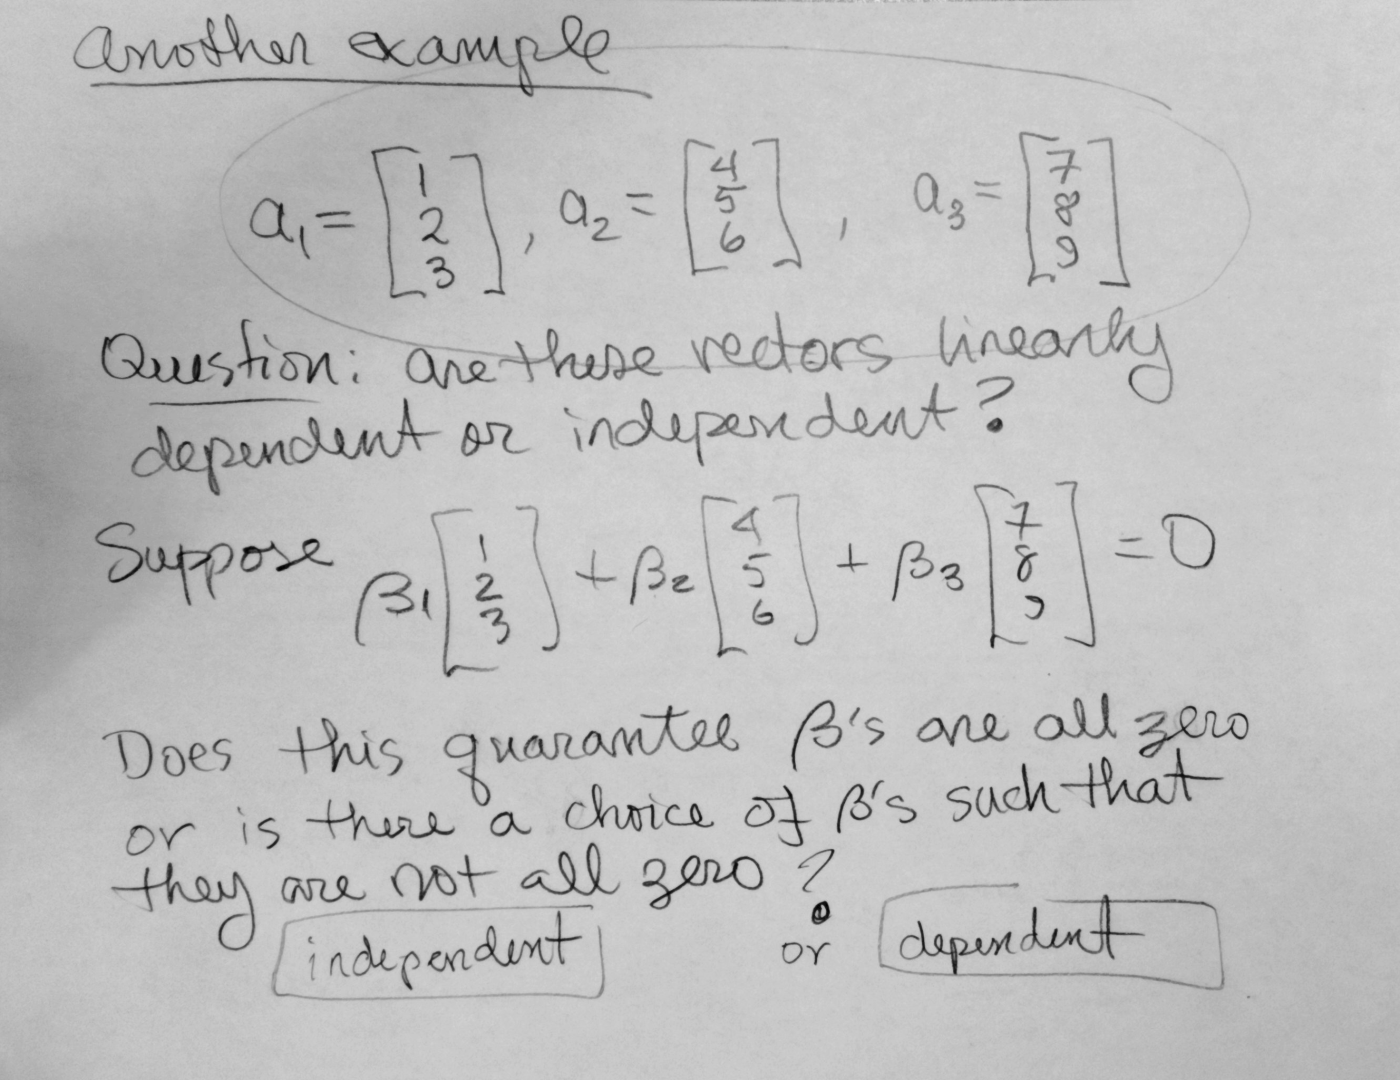 Another example
a₁ = [1 2 3], a₂ = [4 5 6], a₃ = [7 8 9]
Question: are these vectors linearly
dependent or independent?
Suppose β₁ [1 2 3] + β₂ [4 5 6] + β₃ [7 8 9] = 0
Does this guarantee β's are all zero
or is there a choice of β's such that
they are not all zero?
independent or dependent